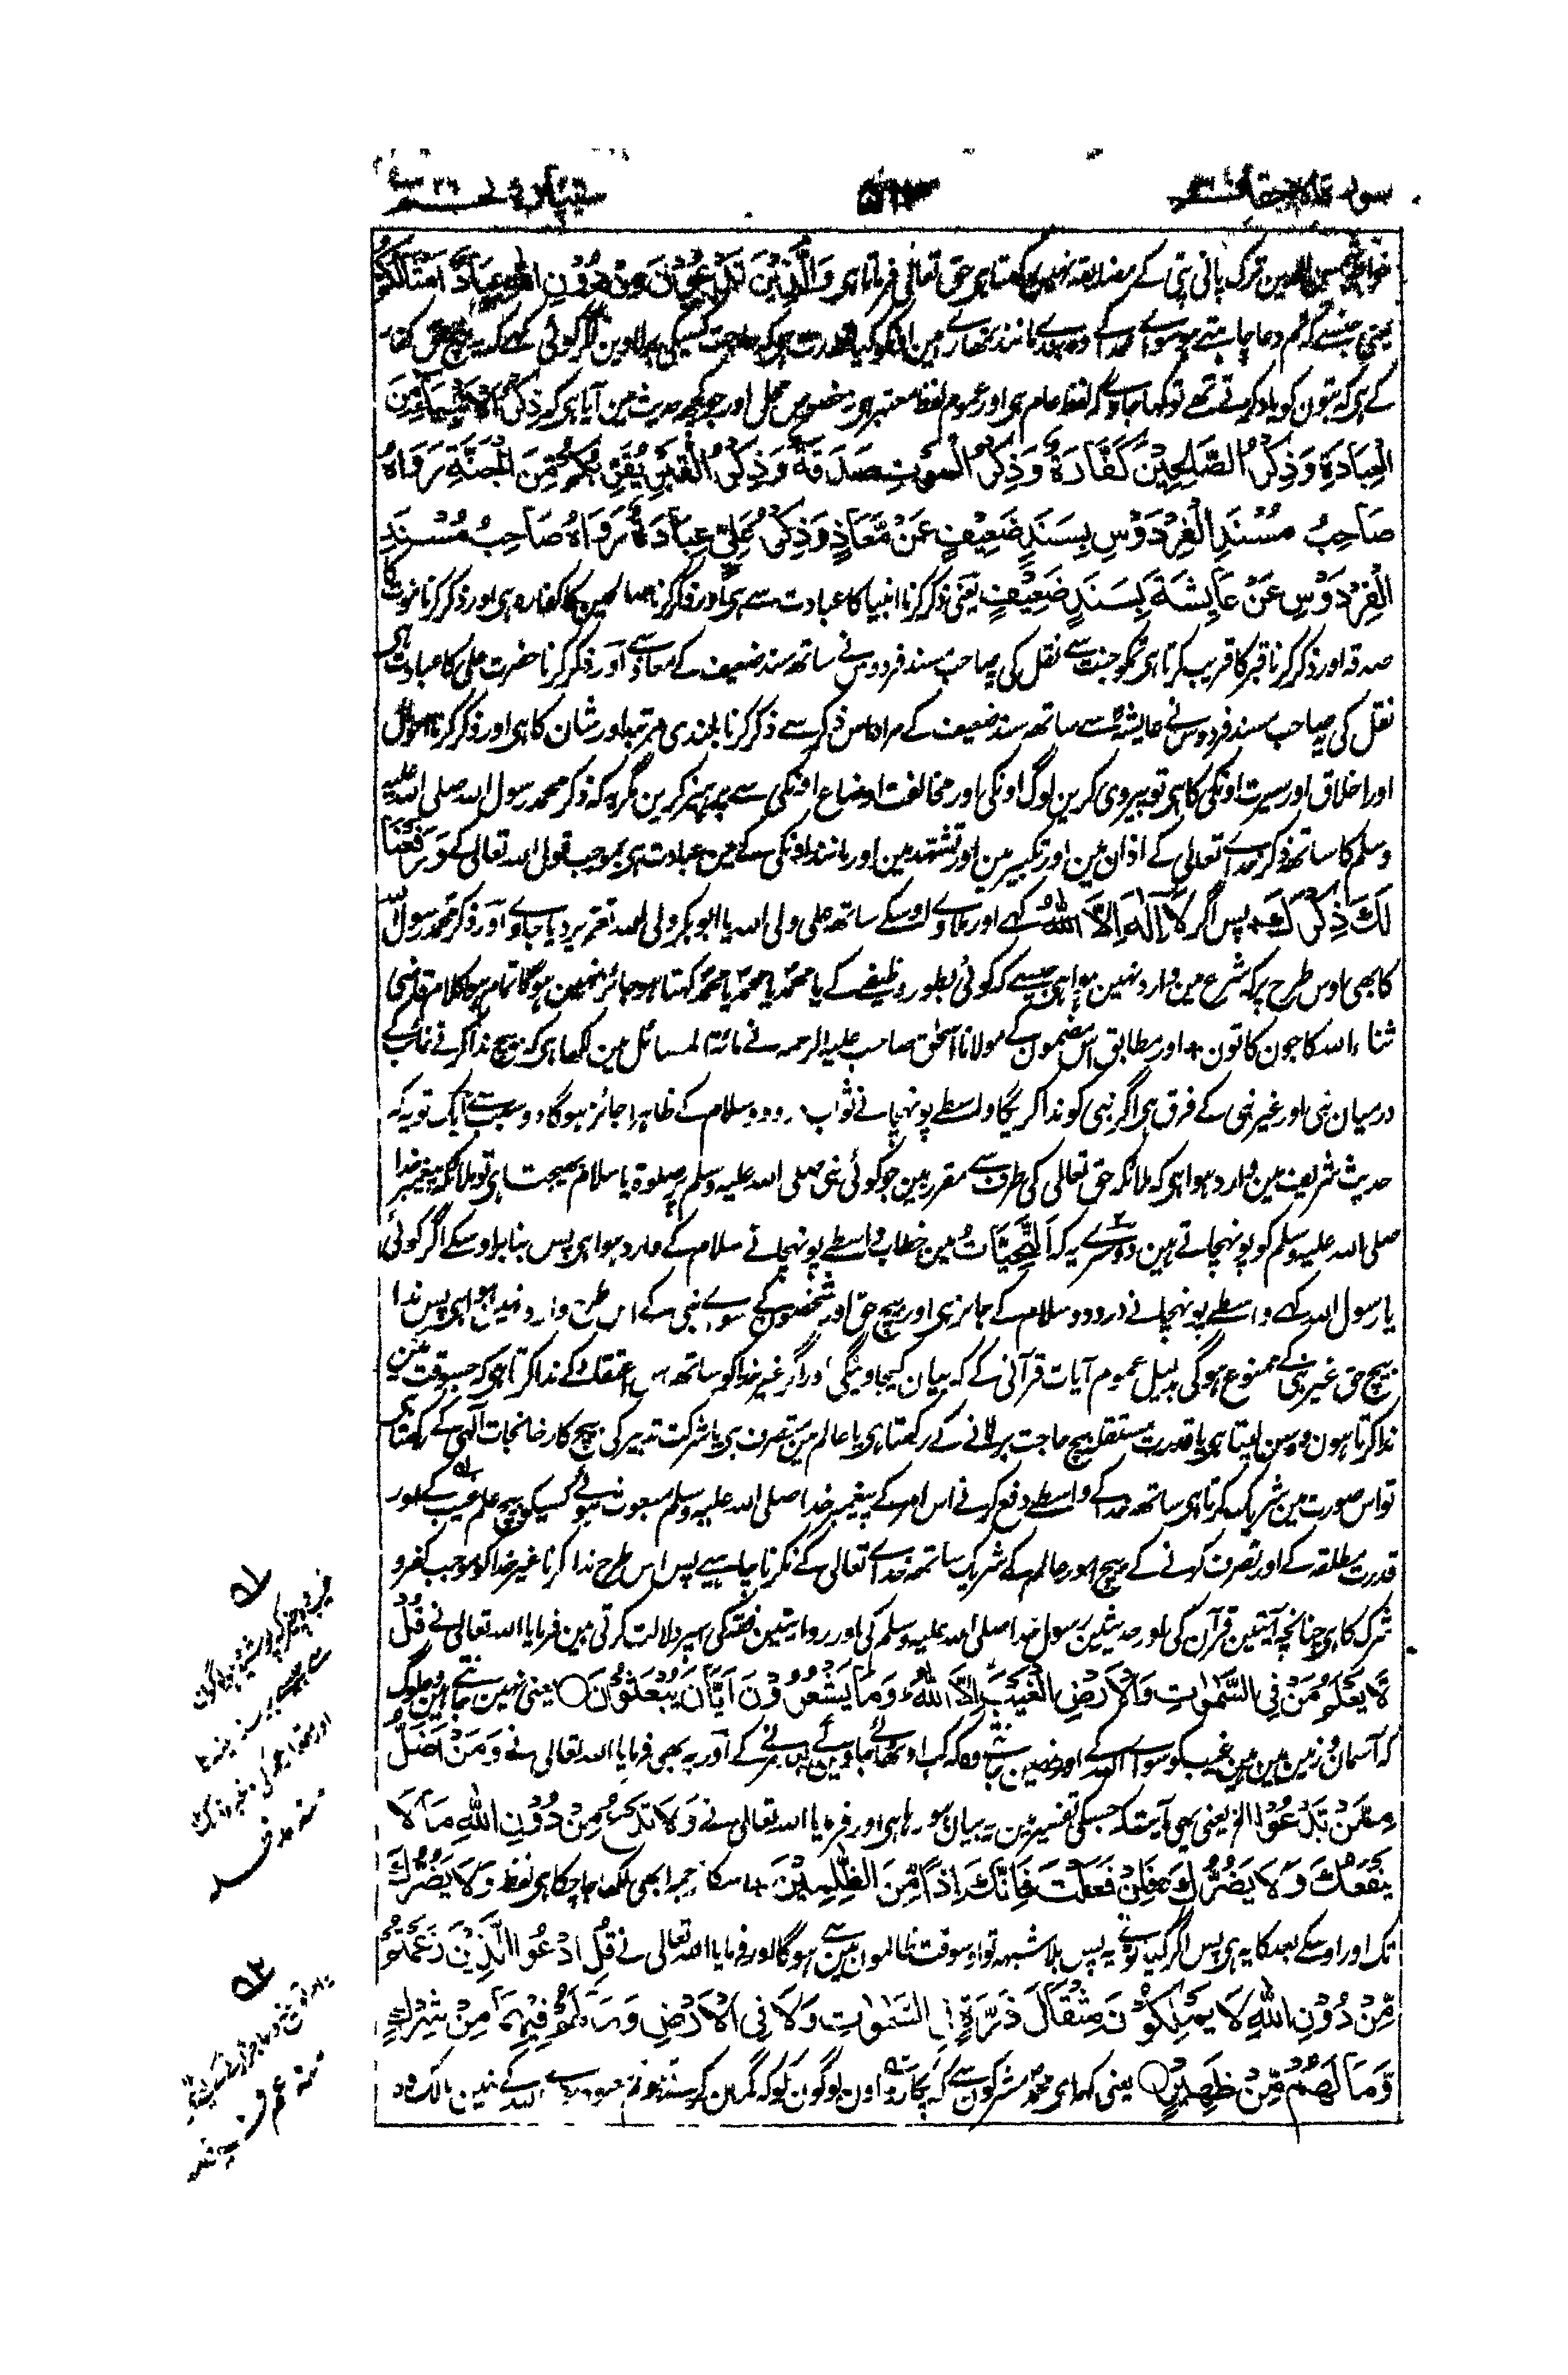 سورة الاحقاف
سیپارہ ۲۶
خواجہ شمس الدین ترک پانی پتی کے مضائقہ نہیں رکھتا ہی حق تعالی فرماتا ہی وَالَّذِيْنَ تَدْعُوْنَ مِنْ دُوْنِ اللهِ عِبَادٌ اَمْثَالُكُمْ
یعنی جنسے کہ تم دعا چاہتے ہو سوائے خدا کے وہ بندے مانند تمھارے ہین اونکو کیا قدرت ہی کہ حاجت کسیکی برلاوین اگر کوئی کہے کہ یہ بیچ حق کفار
کے ہی کہ بتون کو یاد کرتے تھے تو کہا جاوے کہ لفظ عام ہی اور عموم لفظ معتبر ہی نہ خصوص محل اور جو کچھ حدیث مین آیا ہی کہ ذِكْرُ الْاَنْبِيَاءِ مِنَ
الْعِبَادَةِ وَذِكْرُ الصَّالِحِيْنَ كَفَّارَةٌ وَذِكْرُ الْمَوْتِ صَدَقَةٌ وَذِكْرُ الْقَبْرِ يُقَرِّبُكُمْ مِنَ الْجَنَّةِ رَوَاهُ
صَاحِبُ مُسْنَدِ الْفِرْدَوْسِ بِسَنَدٍ ضَعِيْفٍ عَنْ مُّعَاذٍ وَذِكْرُ عَلِيٍّ عِبَادَةٌ رَوَاهُ صَاحِبُ مُسْنَدِ
الْفِرْدَوْسِ عَنْ عَايِشَةَ بِسَنَدٍ ضَعِيْفٍ یعنی ذکر کرنا انبیا کا عبادت سے ہی اور ذکر کرنا صالحین کا کفارہ ہی اور ذکر کرنا موت کا
صدقہ اور ذکر کرنا قبر کا قریب کرتا ہی تمکو جنت سے نقل کی یہ صاحب مسند فردوس نے ساتھ سند ضعیف کے معاذ سے اور ذکر کرنا حضرت علی کا عبادت ہی
نقل کی یہ صاحب مسند فردوس نے عایشہ سے ساتھ سند ضعیف کے مراد اس ذکر سے ذکر کرنا بلندی مرتبہ اور شان کا ہی اور ذکر کرنا احوال
اور اخلاق اور سیرت اونکی کا ہی تو پیروی کرین لوگ اونکی اور مخالفت اوضاع اونکی سے پرہیز کرین مگر یہ کہ ذکر محمد رسول اللہ صلی اللہ علیہ
وسلم کا ساتھ ذکر خدائے تعالی کے اذان مین اور تکبیر مین اور تشہد مین اور مانند اونکی کے مین عبادت ہی بموجب قول اللہ تعالی کے وَرَفَعْنَا
لَكَ ذِكْرَكَ پس اگر لَا اِلٰهَ اِلَّا اللهُ کہے اور ملاوے اوسکے ساتھ علی ولی اللہ یا ابو بکر ولی اللہ تعزیر دیا جاوے اور ذکر محمد رسول اللہ
کا بھی اوس طرح پر کہ شرع مین وارد نہین ہوا ہی جیسے کہ کوئی بطور وظیفے کے یا محمد یا محمد یا محمد کہتا ہو جائز نہین ہوگا تمام ہوا کلام قاضی
ثناء اللہ کا جون کا تون + اور مطابق اس مضمون کے مولانا اسحق صاحب علیہ الرحمہ نے مائۃ المسائل مین لکھا ہی کہ بیچ ندا کرنے غائب کے
درمیان نبی اور غیر نبی کے فرق ہی اگر نبی کو ندا کریگا واسطے پونہچانے ثواب درود وسلام کے ظاہرا جائز ہوگا دو سبب سے ایک تو یہ کہ
حدیث شریف مین وارد ہوا ہی کہ ملائکہ حق تعالی کی طرف سے مقرر ہین جو کوئی نبی صلی اللہ علیہ وسلم پر صلوۃ یا سلام بھیجتا ہی تو ملائکہ پیغمبر خدا
صلی اللہ علیہ وسلم کو پونہچاتے ہین دوسرے یہ کہ اَلتَّحِيَّاتُ مین خطاب واسطے پونہچانے سلام کے وارد ہوا ہی پس بنا بر اوسکے اگر کوئی
یا رسول اللہ کہے واسطے پونہچانے درود وسلام کے جائز ہی اور بیچ حق اور شخصون کے سوائے نبی کے اس طرح وارد نہین ہوا ہی پس ندا
بیچ حق غیر نبی کے ممنوع ہوگی بدلیل عموم آیات قرآنی کے کہ بیان کیجاوینگی اور اگر غیر خدا کو ساتھ اس اعتقاد کے ندا کرتا ہی کہ جسوقت مین
ندا کرتا ہون وہ سن لیتا ہی یا قدرت مستقلہ بیچ حاجت برلانے کے رکھتا ہی یا عالم مین متصرف ہی یا شرکت تدبیر کی بیچ کارخانجات الہی کے رکھتا ہی
تو اس صورت مین شریک کرتا ہی ساتھ خدا کے واسطے دفع کرنے اس امر کے پیغمبر خدا صلی اللہ علیہ وسلم مبعوث ہوئے کسیکو بیچ علم غیب کے اور
قدرت مطلقہ کے اور تصرف کرنے کے بیچ امور عالم کے شریک ساتھ خدائے تعالی کے نکرنا چاہیے پس اس طرح ندا کرنا غیر خدا کو موجب کفر و
شرک کا ہی چنانچہ آیتین قرآن کی اور حدیثین رسول خدا صلی اللہ علیہ وسلم کی اور روایتین فقہ کی اسپر دلالت کرتی ہین فرمایا اللہ تعالی نے قُلْ
لَّا يَعْلَمُ مَنْ فِي السَّمٰوٰتِ وَالْاَرْضِ الْغَيْبَ اِلَّا اللهُ وَمَا يَشْعُرُوْنَ اَيَّانَ يُبْعَثُوْنَ یعنی نہین جانتے ہین وہ لوگ
کہ آسمان و زمین مین ہین غیب کو سوائے اللہ کے اور نہین جانتے وہ کہ کب اوٹھائے جاوینگے کے اور یہ بھی فرمایا اللہ تعالی نے وَمَنْ اَضَلُّ
مِمَّنْ تَدْعُوْا الخ یعنی یہی آیت کہ جسکی تفسیر مین یہ بیان ہو رہا ہی اور فرمایا اللہ تعالی نے وَلَا تَدْعُ مِنْ دُوْنِ اللهِ مَا لَا
يَنْفَعُكَ وَلَا يَضُرُّكَ فَاِنْ فَعَلْتَ فَاِنَّكَ اِذًا مِّنَ الظّٰلِمِيْنَ + اسکا ترجمہ ابھی لکھا جا چکا ہی لفظ وَلَا يَضُرُّكَ
تک اور اوسکے بعد کا یہ ہی پس اگر کیا تونے یہ پس بلا شبہہ تو اوسوقت ظالمون مین سے ہوگا اور فرمایا اللہ تعالی نے قُلِ ادْعُوا الَّذِيْنَ زَعَمْتُمْ
مِّنْ دُوْنِ اللهِ لَا يَمْلِكُوْنَ مِثْقَالَ ذَرَّةٍ فِي السَّمٰوٰتِ وَلَا فِي الْاَرْضِ وَمَا لَهُمْ فِيْهِمَا مِنْ شِرْكٍ
وَّمَا لَهُمْ مِّنْ ظَهِيْرٍ یعنی کہہ ای محمد مشرکون سے کہ پکارو اون لوگون کو کہ گمان کرتے ہو تم سوائے اللہ کے نہین مالک وہ